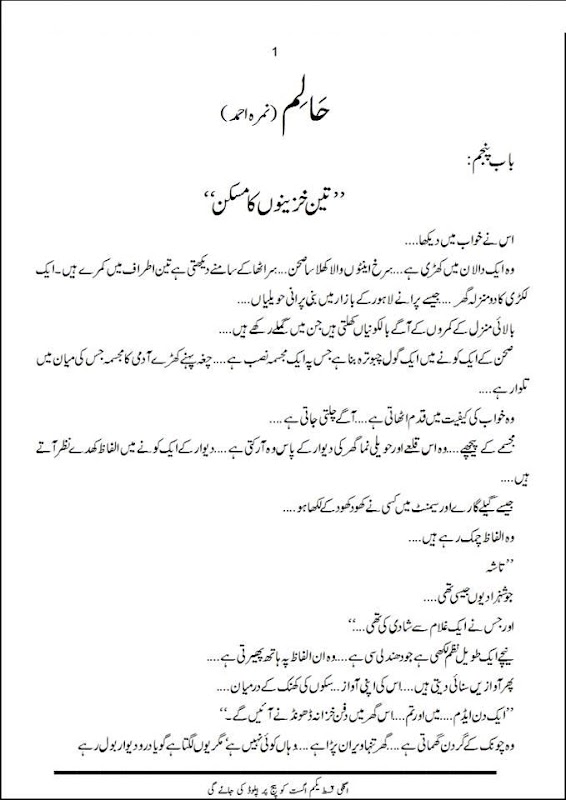 1
حَالِم (نمرہ احمد)
باب پنجم:
’’تین خزینوں کا مسکن‘‘
اس نے خواب میں دیکھا....
وہ ایک دالان میں کھڑی ہے... سرخ اینٹوں والا کھلا سا صحن... سر اٹھا کے سامنے دیکھتی ہے تین اطراف میں کمرے ہیں۔ ایک
لکڑی کا دو منزلہ گھر.... جیسے پرانے لاہور کے بازار میں بنی پرانی حویلیاں....
بالائی منزل کے کمروں کے آگے بالکونیاں کھلتی ہیں جن میں گملے رکھے ہیں....
صحن کے ایک کونے میں ایک گول چبوترہ بنا ہے جس پہ ایک مجسمہ نصب ہے.... چغہ پہنے کھڑے آدمی کا مجسمہ جس کی میان میں
تلوار ہے....
وہ خواب کی کیفیت میں قدم اٹھاتی ہے.... آگے چلتی جاتی ہے....
مجسمے کے پیچھے.... وہ اس قلعے اور حویلی نما گھر کی دیوار کے پاس وہ آ رکتی ہے.... دیوار کے ایک کونے میں الفاظ کھدے نظر آتے
ہیں....
جیسے گیلے گارے اور سیمنٹ میں کسی نے کھود کھود کے لکھا ہو....
وہ الفاظ چمک رہے ہیں....
’’تاشہ
جو شہزادیوں جیسی تھی....
اور جس نے ایک غلام سے شادی کی تھی....‘‘
نیچے ایک طویل نظم لکھی ہے جو دھندلی سی ہے.... وہ ان الفاظ پہ ہاتھ پھیرتی ہے....
پھر آوازیں سنائی دیتی ہیں.... اس کی اپنی آواز... سکوں کی کھنک کے درمیان....
’’ایک دن ایڈم.... میں اور تم.... اس گھر میں دفن خزانہ ڈھونڈنے آئیں گے۔‘‘
وہ چونک کے گردن گھماتی ہے.... گھر تنہا ویران پڑا ہے... وہاں کوئی نہیں ہے‘ مگر یوں لگتا ہے گویا در و دیوار بول رہے
اگلی قسط یکم اگست کو پیج پر اپلوڈ کی جائے گی